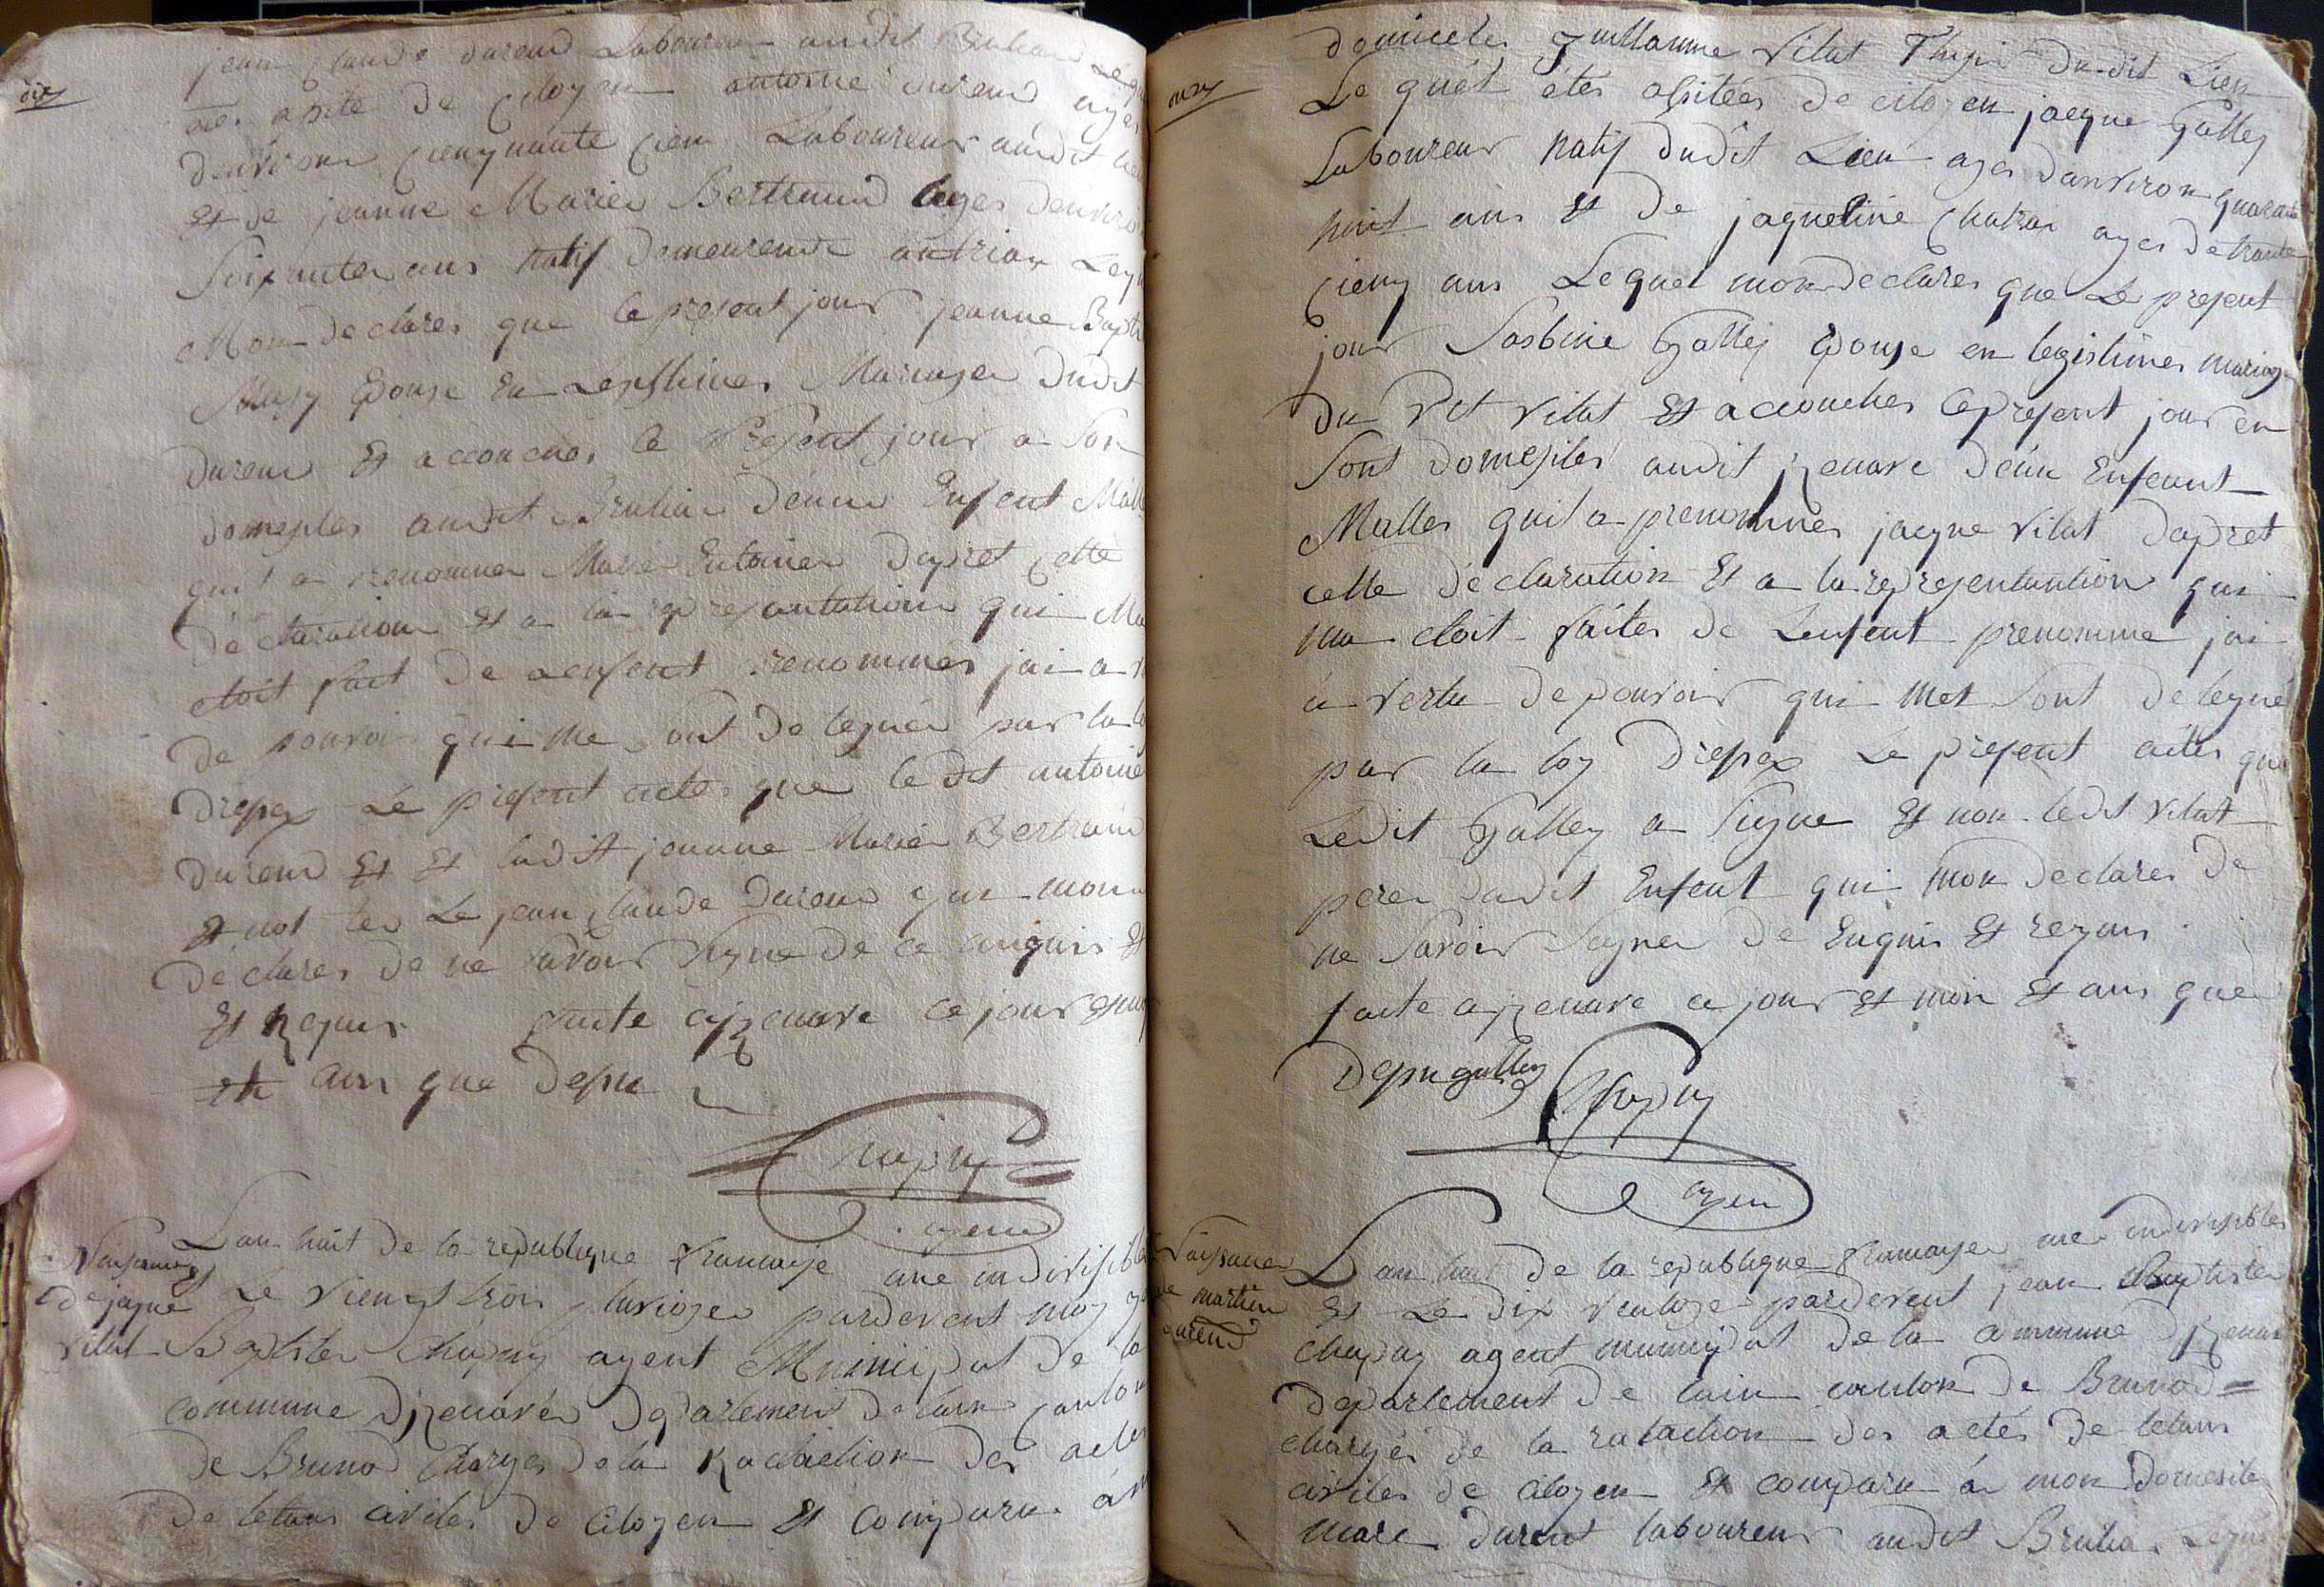 dix
jean Claude durend Laboureur audit Brulia Lequ
apité de citoyen antoine durend ages
denviron cienquante cien Laboureur audit lieu
Et de jeanne Marier Bertrand ages denviron
Soixanter ans natif demeurend Lequ
Mon declares que le present jour jeanne Bapti
Epouse En Mariager dudit
durend Et accouches le Present jour a Son
domesiles audit Brulia denne Enfent Mall
qui a prenommer Marie Entoiner dapret cette
declaration Et a la representation qui Ma
etoit fait de Lenfent prenommes jai a v
de pouvoir qui me sont deleguer par la lo
drepes Le present acte que ledit antoine
durend Et Et ladit jeanne Marier Bertrand
Et not Le jean Claude durend qui mon
declares de ne savoir Signe de ce anquis Et
Et requis faite ajzenave ce jour Et moi
ans que desu
Chapuy
agend
Naissance
de jaque
vilat
Lan huit de la republique francaise une indivisible
Et Le vienst trois pluvioses pardevent moy j
Baptister Chapuy agent Municipal de la
commune djzenaves departement de lain canton
de Brunod Charges de la Radaction des actes
de letans civiles de citoyen Et comparu a m
onzy
domiceles guillaume vilat du dit Lieu
Le quel étés asitées de citoyen jacque Galley
Laboureur natif dudit Lieu ages danviron quarante
huit ans Et de jaqueline Chatrai ages de trante
cienq ans Lequel mon declares que Le present
jour Sasbine Galley Epouse en legistimes mariage
du dit vilat Et accouches le present jour en
Sont domesiles audit jzenave deun Enfeant
Malles quil a prenommes jacque vilat dapret
cette declaration Et a la representantion qui
ma etoit faites de Lenfent prenomme jai
a vertu de pouvoir qui Met Sont delegué
par la loy drepes Le present actes que
Ledit Galley a Signe Et non ledit vilat
perer dudit Enfent qui mon declares de
ne Savoir Signer de Enquis Et requis
faite ajzenave ce jour Et moin Et ans que
Desu galley
Chapuy
agen
Naissance
de martin
Durend
Lan huit de la republique francayse une indivisibles
Et Le dix ventoze pardevent jean Baptister
chapuy agent municipal de la commune djzenave
departement de lain canton de Brunod
charges de la rataction des actes de letans
civiles de citoyen Et comparu a mon domesile
marc durent laboureur audit Brulia Lequ